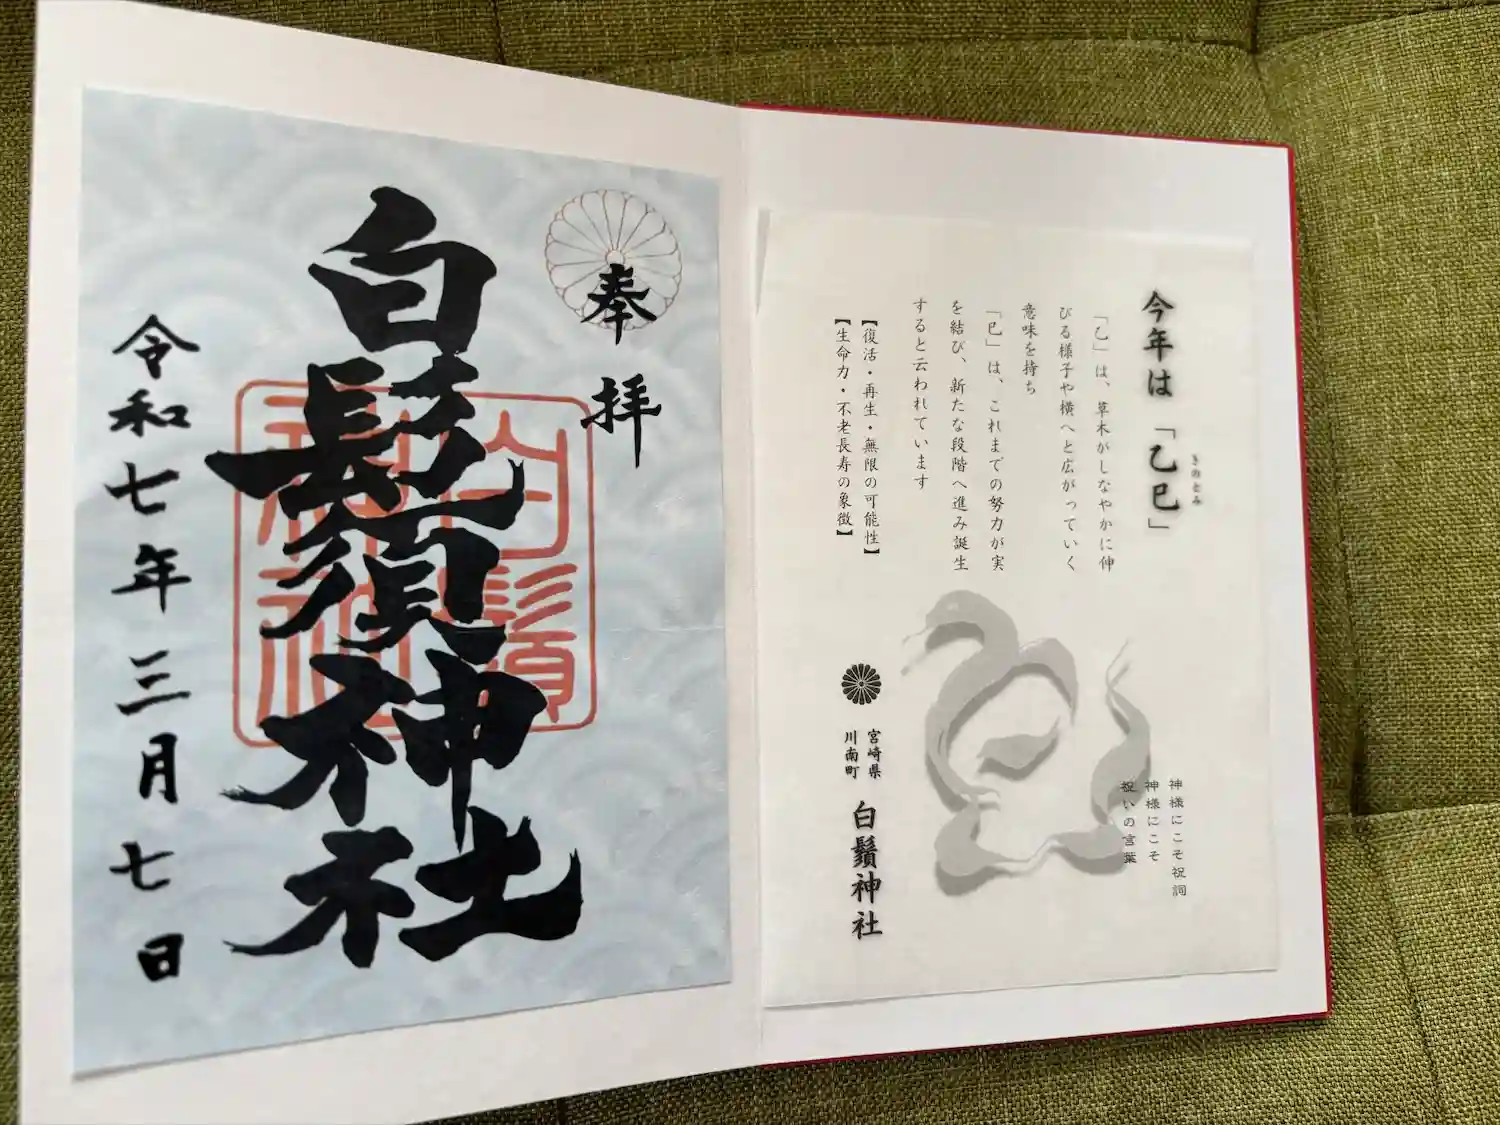 奉拝
白鬚神社
白鬚神社
令和七年三月七日
今年は「乙巳」
きのとみ
「乙」は、草木がしなやかに伸
びる様子や横へと広がっていく
意味を持ち
「巳」は、これまでの努力が実
を結び、新たな段階へ進み誕生
すると云われています
【復活・再生・無限の可能性】
【生命力・不老長寿の象徴】
神様にこそ祝詞
神様にこそ
祝いの言葉
宮崎県
川南町
白鬚神社